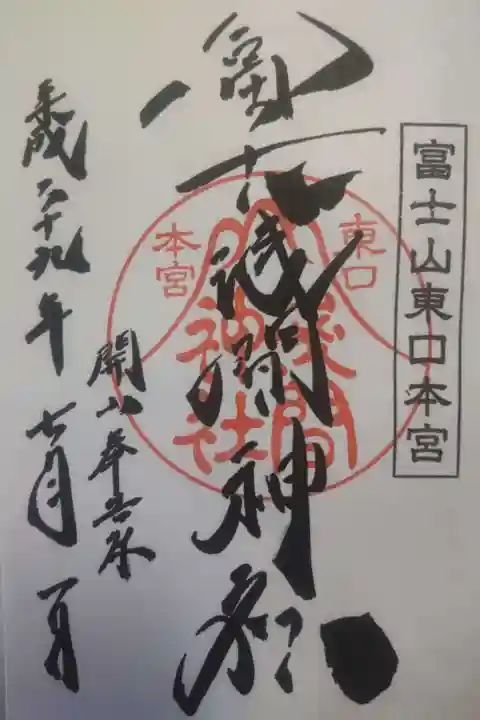 富士山東口本宮
冨士浅間神社
東口
本宮
淺間
神社
開山奉告祭
平成二十九年七月一日